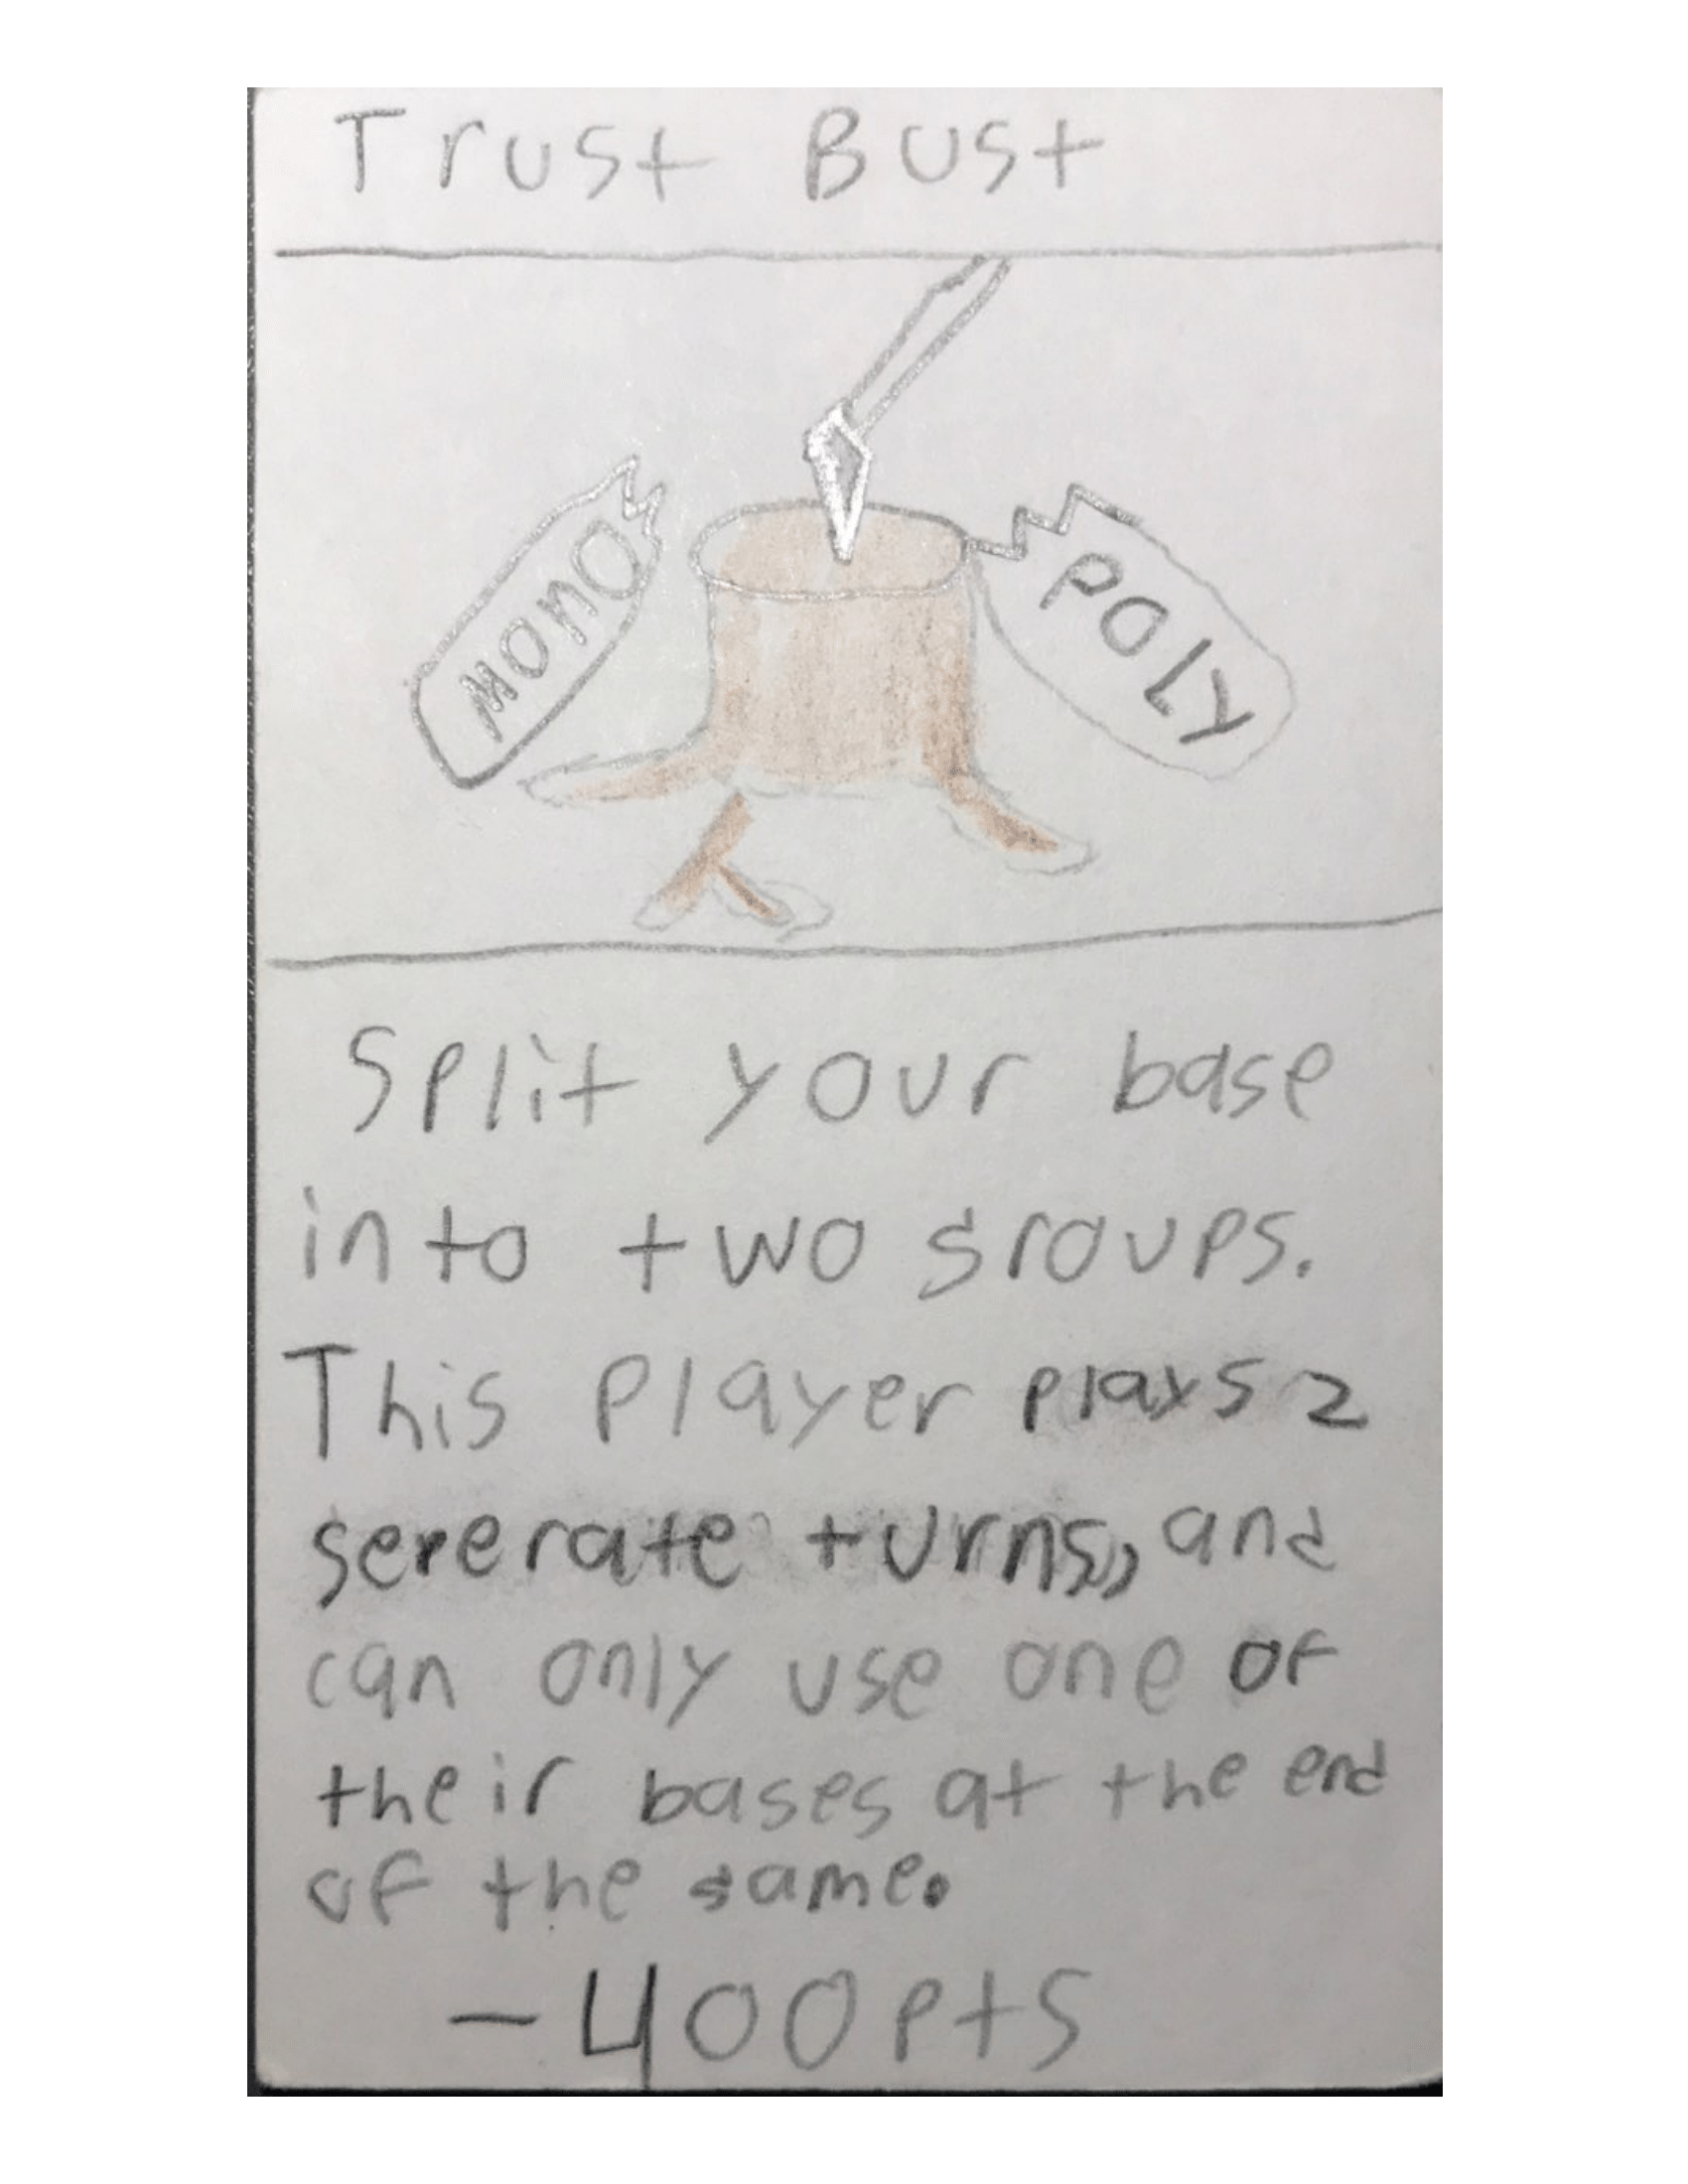 Trust Bust
MONO
POLY
Split your base
into two groups.
This player plays 2
sererate turns, and
can only use one of
their bases at the end
of the game.
-400pts